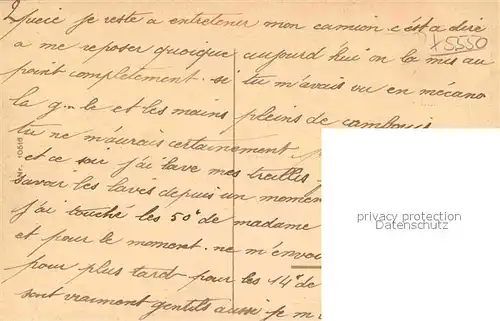 2
pièce je reste a entretenir mon camion c'est a dire
a me reposer quoique aujourd hui on la mis au
point completement. si tu m'avais vu en mecano
la g..le et les mains pleins de cambouis
tu ne m'aurais certainement
et ce soir j'ai lavé mes treillis
savoir les laves depuis un momen
j'ai touché les 50f de madame
et pour le moment. ne m'envoi
pour plus tard pour les 14f de
sont vraiment gentils aussi je m
X5550
Nr. 10516
privacy protection
Datenschutz